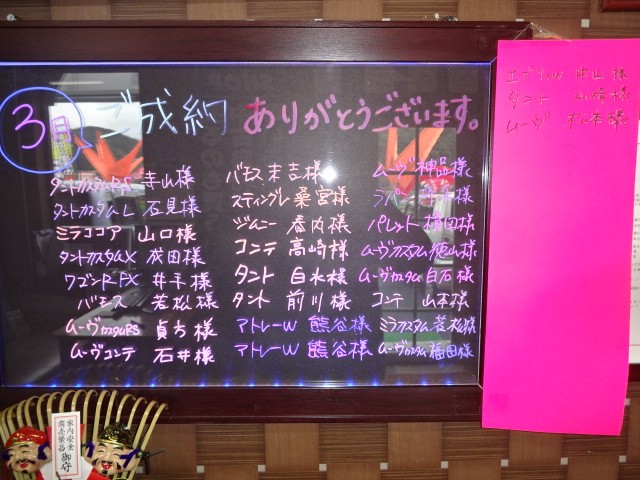 3日 ご成約 ありがとうございます。
タントカスタムRS 寺山様
タントカスタムL 石見様
ミラココア 山口様
タントカスタムX 成田様
ワゴンR FX 井手様
バモス 若松様
ムーヴカスタムRS 貞方様
ムーヴコンテ 石井様
バモス 末吉様
スティングレー 桑宮様
ジムニー 春内様
コンテ 高崎様
タント 白水様
タント 前川様
アトレーW 熊谷様
アトレーW 熊谷様
ムーヴ 神品様
ラパン 様
パレット 横田様
ムーヴカスタム 徳山様
ムーヴカスタム 白石様
コンテ 山本様
ミラカスタム 若松様
ムーヴカスタム 福田様
エブリィW 中山様
タント 山崎様
ムーヴ 松本様
家内安全
商売繁昌
御守